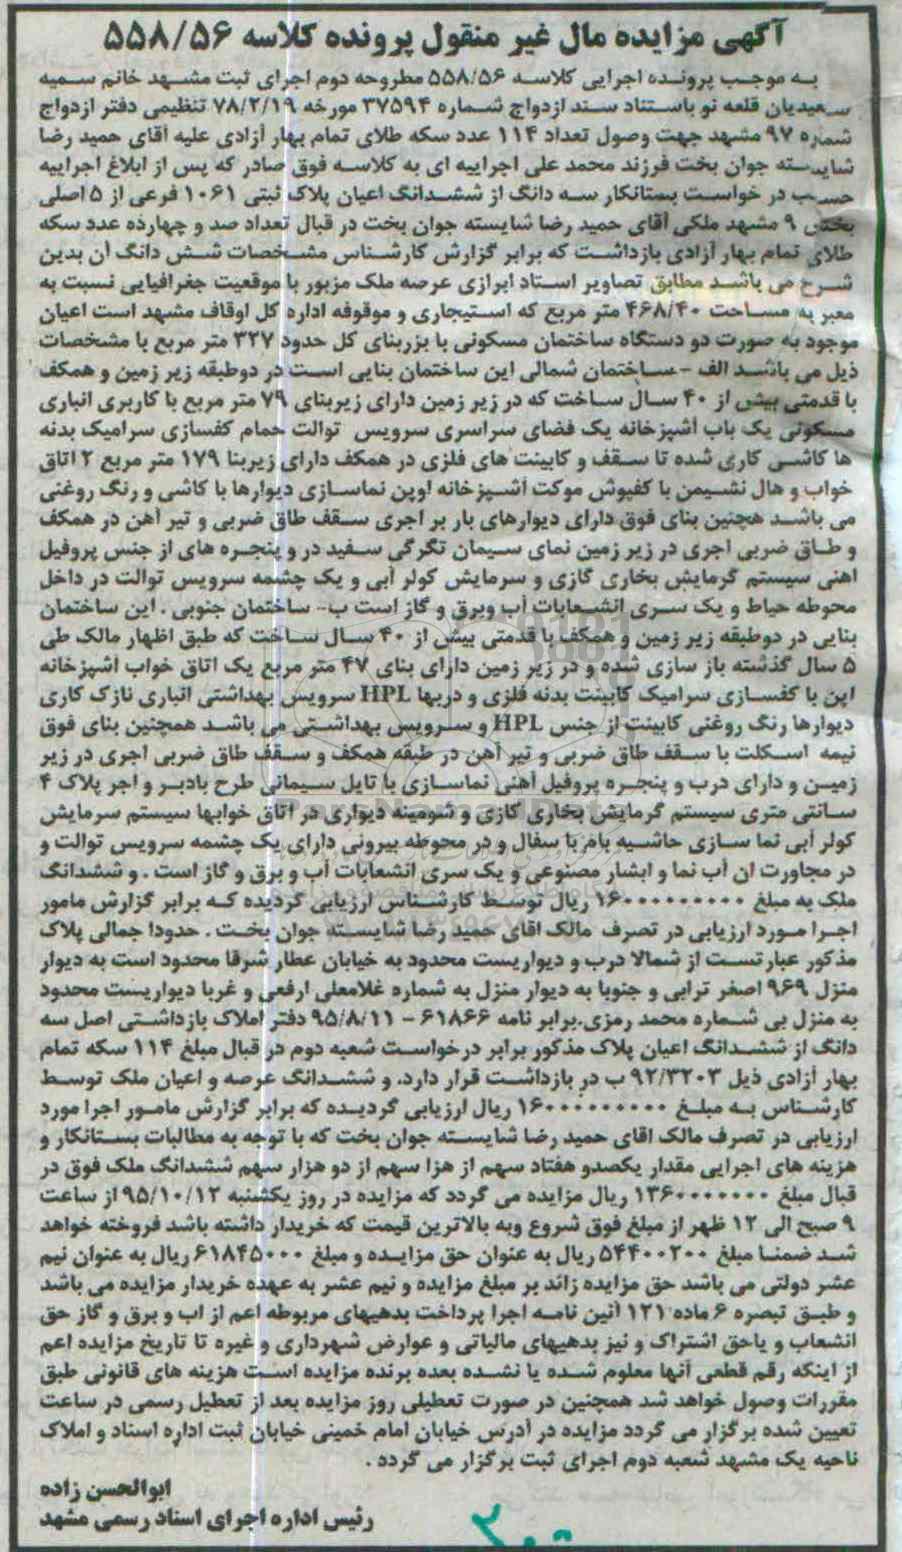 آگهی مزایده مال غیر منقول پرونده کلاسه ۵۵۸/۵۶
به موجب پرونده اجرایی کلاسه ۵۵۸/۵۶ مطروحه دوم اجرای ثبت مشهد خانم سمیه
سعیدیان قلعه نو باستناد سند ازدواج شماره ۳۷۵۹۴ مورخه ۷۸/۲/۱۹ تنظیمی دفتر ازدواج
شماره ۹۷ مشهد جهت وصول تعداد ۱۱۴ عدد سکه طلای تمام بهار آزادی علیه آقای حمید رضا
شایسته جوان بخت فرزند محمد علی اجراییه ای به کلاسه فوق صادر که پس از ابلاغ اجراییه
حسب در خواست بستانکار سه دانگ از ششدانگ اعیان پلاک ثبتی ۱۰۶۱ فرعی از ۵ اصلی
بخش ۹ مشهد ملکی آقای حمید رضا شایسته جوان بخت در قبال تعداد صد و چهارده عدد سکه
طلای تمام بهار آزادی بازداشت که برابر گزارش کارشناس مشخصات شش دانگ آن بدین
شرح می باشد مطابق تصاویر اسناد ابرازی عرصه ملک مزبور با موقعیت جغرافیایی نسبت به
معبر به مساحت ۴۶۸/۴۰ متر مربع که استیجاری و موقوفه اداره کل اوقاف مشهد است اعیان
موجود به صورت دو دستگاه ساختمان مسکونی با بزربنای کل حدود ۳۲۷ متر مربع با مشخصات
ذیل می باشد الف - ساختمان شمالی این ساختمان بنایی است در دوطبقه زیر زمین و همکف
با قدمتی بیش از ۴۰ سال ساخت که در زیر زمین دارای زیربنای ۷۹ متر مربع با کاربری انباری
مسکونی یک باب آشپزخانه یک فضای سراسری سرویس توالت حمام کفسازی سرامیک بدنه
ها کاشی کاری شده تا سقف و کابینت های فلزی در همکف دارای زیربنا ۱۷۹ متر مربع ۲ اتاق
خواب و هال نشیمن با کفپوش موکت آشپزخانه اوپن نماسازی دیوارها با کاشی و رنگ روغنی
می باشد هچنین بنای فوق دارای دیوارهای بار بر اجری سقف طاق ضربی و تیر آهن در همکف
و طاق ضربی اجری در زیر زمین نمای سیمان تگرگی سفید در و پنجره های از جنس پروفیل
اهنی سیستم گرمایش بخاری گازی و سرمایش کولر آبی و یک چشمه سرویس توالت در داخل
محوطه حیاط و یک سری انشعابات آب وبرق و گاز است ب- ساختمان جنوبی . این ساختمان
بنایی در دوطبقه زیر زمین و همکف با قدمتی بیش از ۴۰ سال ساخت که طبق اظهار مالک طی
۵ سال گذشته باز سازی شده و در زیر زمین دارای بنای ۴۷ متر مربع یک اتاق خواب آشپزخانه
این با کفسازی سرامیک کابینت بدنه فلزی و دربها HPL سرویس بهداشتی انباری نازک کاری
دیوارها رنگ روغنی کابینت از جنس HPL و سرویس بهداشتی می باشد همچنین بنای فوق
نیمه اسکلت با سقف طاق ضربی و تیر آهن در طبقه همکف و سقف طاق ضربی اجری در زیر
زمین و دارای درب و پنجره پروفیل آهنی نماسازی با تایل سیمانی طرح بادبر و اجر پلاک ۴
سانتی متری سیستم گرمایش بخاری گازی و شومینه دیواری در اتاق خوابها سیستم سرمایش
کولر آبی نما سازی حاشیه بام با سفال و در محوطه بیرونی دارای یک چشمه سرویس توالت و
در مجاورت ان آب نما و ابشار مصنوعی و یک سری انشعابات آب و برق و گاز است . و ششدانگ
ملک به مبلغ ۱۶۰۰۰۰۰۰۰۰۰ ریال توسط کارشناس ارزیابی گردیده که برابر گزارش مامور
اجرا مورد ارزیابی در تصرف مالک اقای حمید رضا شایسته جوان بخت . حدودا جمالی پلاک
مذکور عبارتست از شمالا درب و دیواریست محدود به خیابان عطار شرقا محدود است به دیوار
منزل ۹۶۹ اصغر ترابی و جنوبا به دیوار منزل به شماره غلامعلی ارفعی و غربا دیواریست محدود
به منزل بی شماره محمد رمزی.برابر نامه ۶۱۸۶۶ - ۹۵/۸/۱۱ دفتر املاک بازداشتی اصل سه
دانگ از ششدانگ اعیان پلاک مذکور برابر درخواست شعبه دوم در قبال مبلغ ۱۱۴ سکه تمام
بهار آزادی ذیل ۹۲/۳۲۰۳ ب در بازداشت قرار دارد. و ششدانگ عرصه و اعیان ملک توسط
کارشناس به مبلغ ۱۶۰۰۰۰۰۰۰۰۰ ریال ارزیابی گردیده که برابر گزارش مامور اجرا مورد
ارزیابی در تصرف مالک اقای حمید رضا شایسته جوان بخت که با توجه به مطالبات بستانکار و
هزینه های اجرایی مقدار یکصدو هفتاد سهم از هزا سهم از دو هزار سهم ششدانگ ملک فوق در
قبال مبلغ ۱۳۶۰۰۰۰۰۰۰ ریال مزایده می گردد که مزایده در روز یکشنبه ۹۵/۱۰/۱۲ از ساعت
۹ صبح الی ۱۲ ظهر از مبلغ فوق شروع وبه بالاترین قیمت که خریدار داشته باشد فروخته خواهد
شد ضمنا مبلغ ۵۴۴۰۰۲۰۰ ریال به عنوان حق مزایده و مبلغ ۶۱۸۴۵۰۰۰ ریال به عنوان نیم
عشر دولتی می باشد حق مزایده زائد بر مبلغ مزایده و نیم عشر به عهده خریدار مزایده می باشد
و طبق تبصره ۶ ماده ۱۲۱ آئین نامه اجرا پرداخت بدهیهای مربوطه اعم از اب و برق و گاز حق
انشعاب و یاحق اشتراک و نیز بدهیهای مالیاتی و عوارض شهرداری و غیره تا تاریخ مزایده اعم
از اینکه رقم قطعی آنها معلوم شده یا نشده بعده برنده مزایده است هزینه های قانونی طبق
مقررات وصول خواهد شد همچنین در صورت تعطیلی روز مزایده بعد از تعطیل رسمی در ساعت
تعیین شده برگزار می گردد مزایده در آدرس خیابان امام خمینی خیابان ثبت اداره اسناد و املاک
ناحیه یک مشهد شعبه دوم اجرای ثبت برگزار می گردد .
ابوالحسن زاده
رئیس اداره اجرای اسناد رسمی مشهد